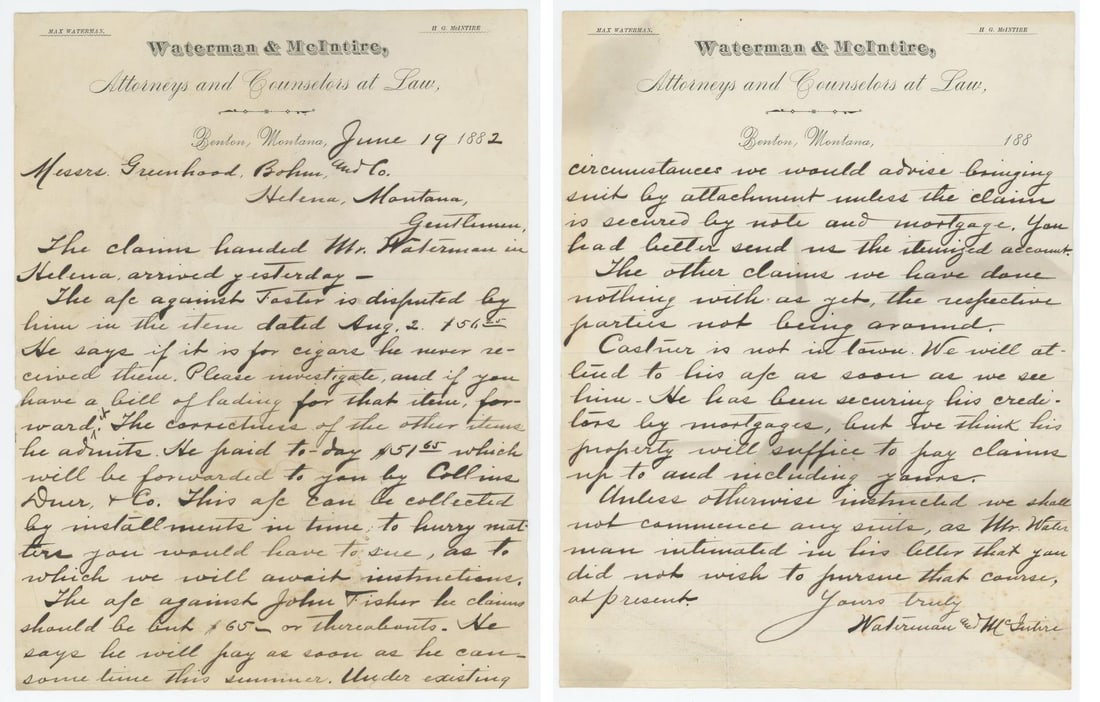 MAX WATERMAN.
H. G. McINTIRE
Waterman & McIntire,
Attorneys and Counselors at Law,
Benton, Montana, June 19 1882
Messrs. Greenhood, Bohm, and Co.
Helena, Montana,
Gentlemen,
The claims handed Mr. Waterman in
Helena, arrived yesterday —
The a/c against Foster is disputed by
him in the item dated Aug. 2. $56.25
He says if it is for cigars he never re-
ceived them. Please investigate, and if you
have a bill of lading for that item, for-
ward it. The correctness of the other items
he admits. He paid to-day $51 65 which
will be forwarded to you by Collins
Duer, & Co. This a/c can be collected
by installments in time; to hurry mat-
ters you would have to sue, as to
which we will await instructions.
The a/c against John Fisher he claims
should be but $65— or thereabouts. He
says he will pay as soon as he can—
some time this summer. Under existing
MAX WATERMAN.
H. G. McINTIRE
Waterman & McIntire,
Attorneys and Counselors at Law,
Benton, Montana, 188
circumstances we would advise bringing
suit by attachment unless the claim
is secured by note and mortgage. You
had better send us the itemized account.
The other claims we have done
nothing with as yet, the respective
parties not being around.
Castner is not in town. We will at-
tend to his a/c as soon as we see
him. He has been securing his credi-
tors by mortgages, but we think his
property will suffice to pay claims
up to and including yours.
Unless otherwise instructed we shall
not commence any suits, as Mr. Water
man intimated in his letter that you
did not wish to pursue that course,
at present.
Yours truly
Waterman and McIntire